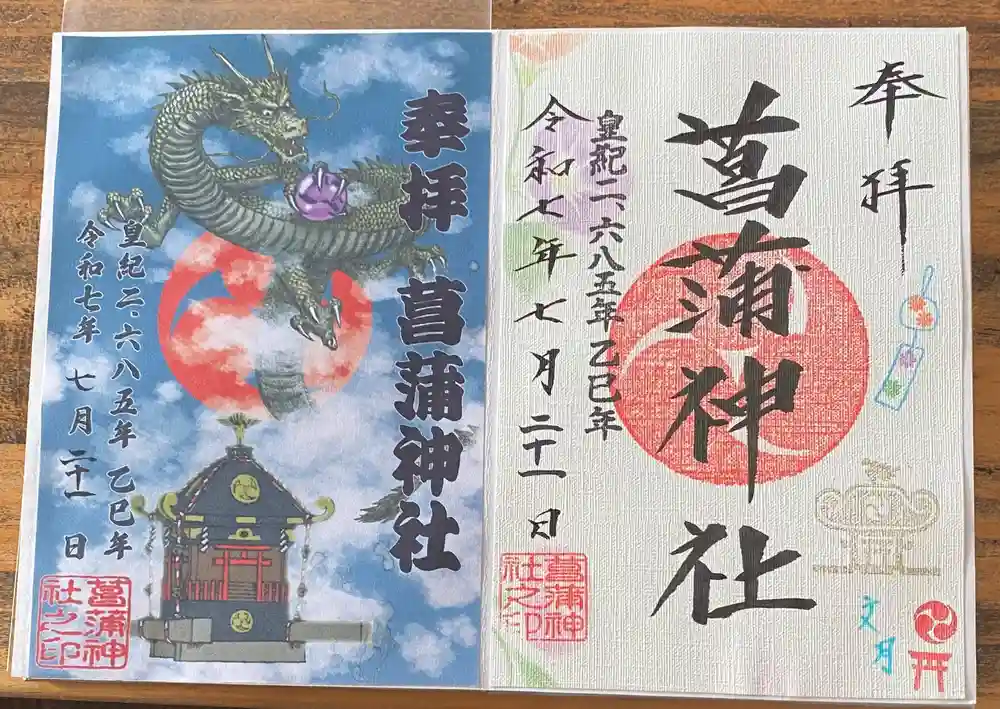 奉拝
菖蒲神社
皇紀二、六八五年乙巳年
令和七年七月二十一日
菖蒲神
社之印
文月
奉拝 菖蒲神社
皇紀二、六八五年 乙巳年
令和七年 七月 二十一日
菖蒲神
社之印